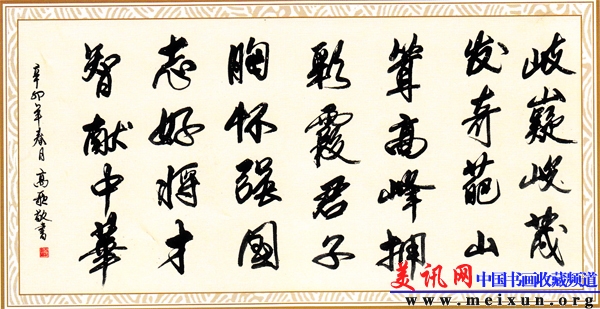 岐嶷峻茂
发奇葩山
耸高峰拥
彩霞君子
胸怀强国
志好将才
智献中華
辛卯年春月高歌敬書
美讯网
中国书画收藏频道
www.meixun.org